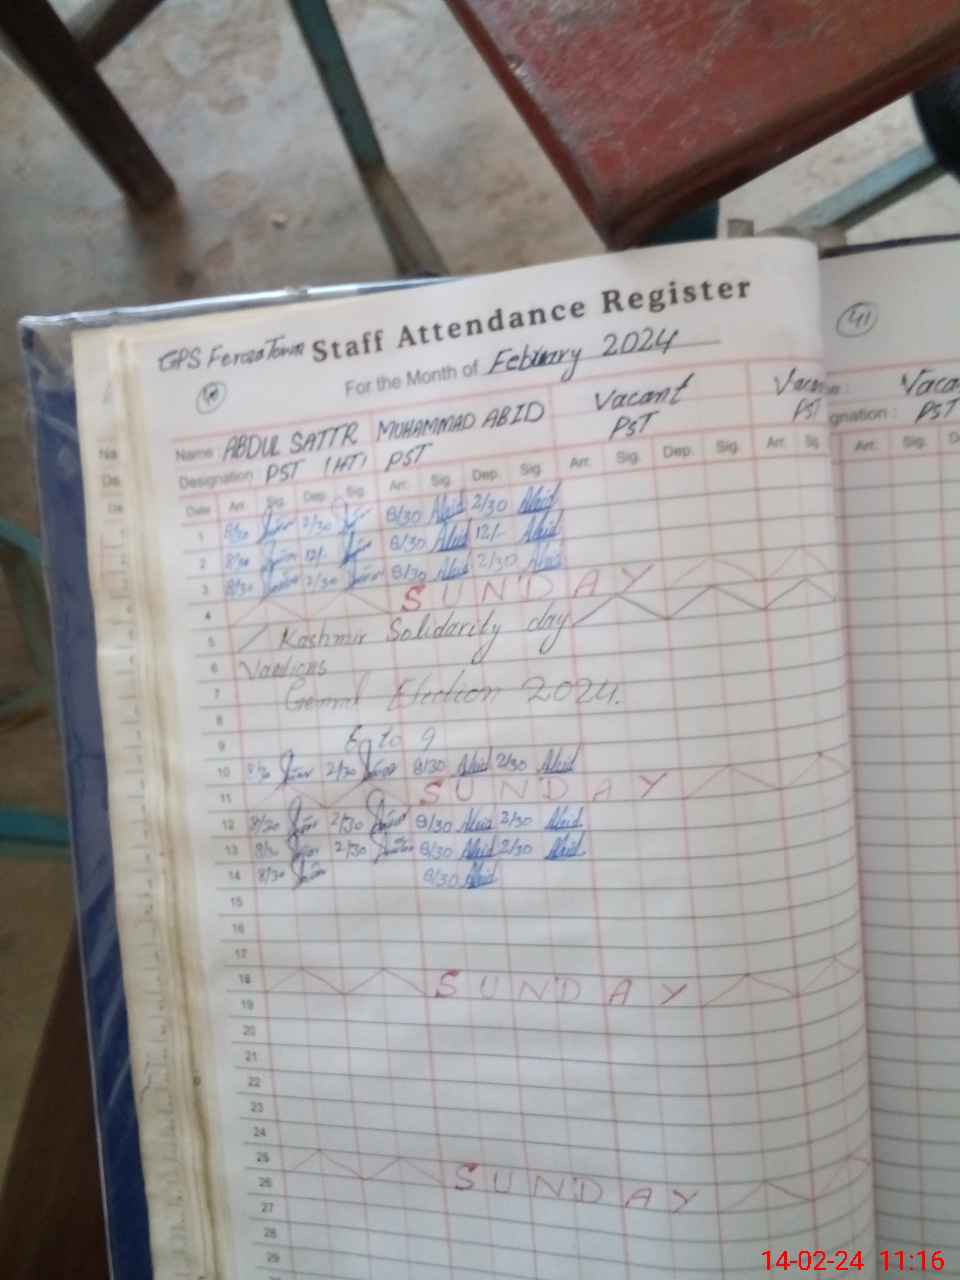 GPS Feroza Town Staff Attendance Register
For the Month of February 2024
41
Name: ABDUL SATTR MUHAMMAD ABID Vacant Vacan Vaca
Designation: PST (HT) PST PST PST gnation: PST
Date Arr. Sig. Dep. Sig. Arr. Sig. Dep. Sig. Arr. Sig. Dep. Sig. Arr. Sig. Arr. Sig. D
1 8/30 2/30 8/30 Abid 2/30 Abid
2 8/30 12/- 8/30 Abid 12/- Abid
3 8/30 2/30 8/30 Abid 2/30 Abid
4 SUNDAY
5 Kashmir Solidarity day
6
7 General Election 2024.
8
9 6 to 9
10 2/30 8/30 Abid 2/30 Abid
11 SUNDAY
12 8/30 2/30 8/30 Abid 2/30 Abid
13 2/30 8/30 Abid 2/30 Abid
14 8/30 8/30 Abid
15
16
17
18 SUNDAY
19
20
21
22
23
24
25 SUNDAY
26
27
28
29
14-02-24 11:16